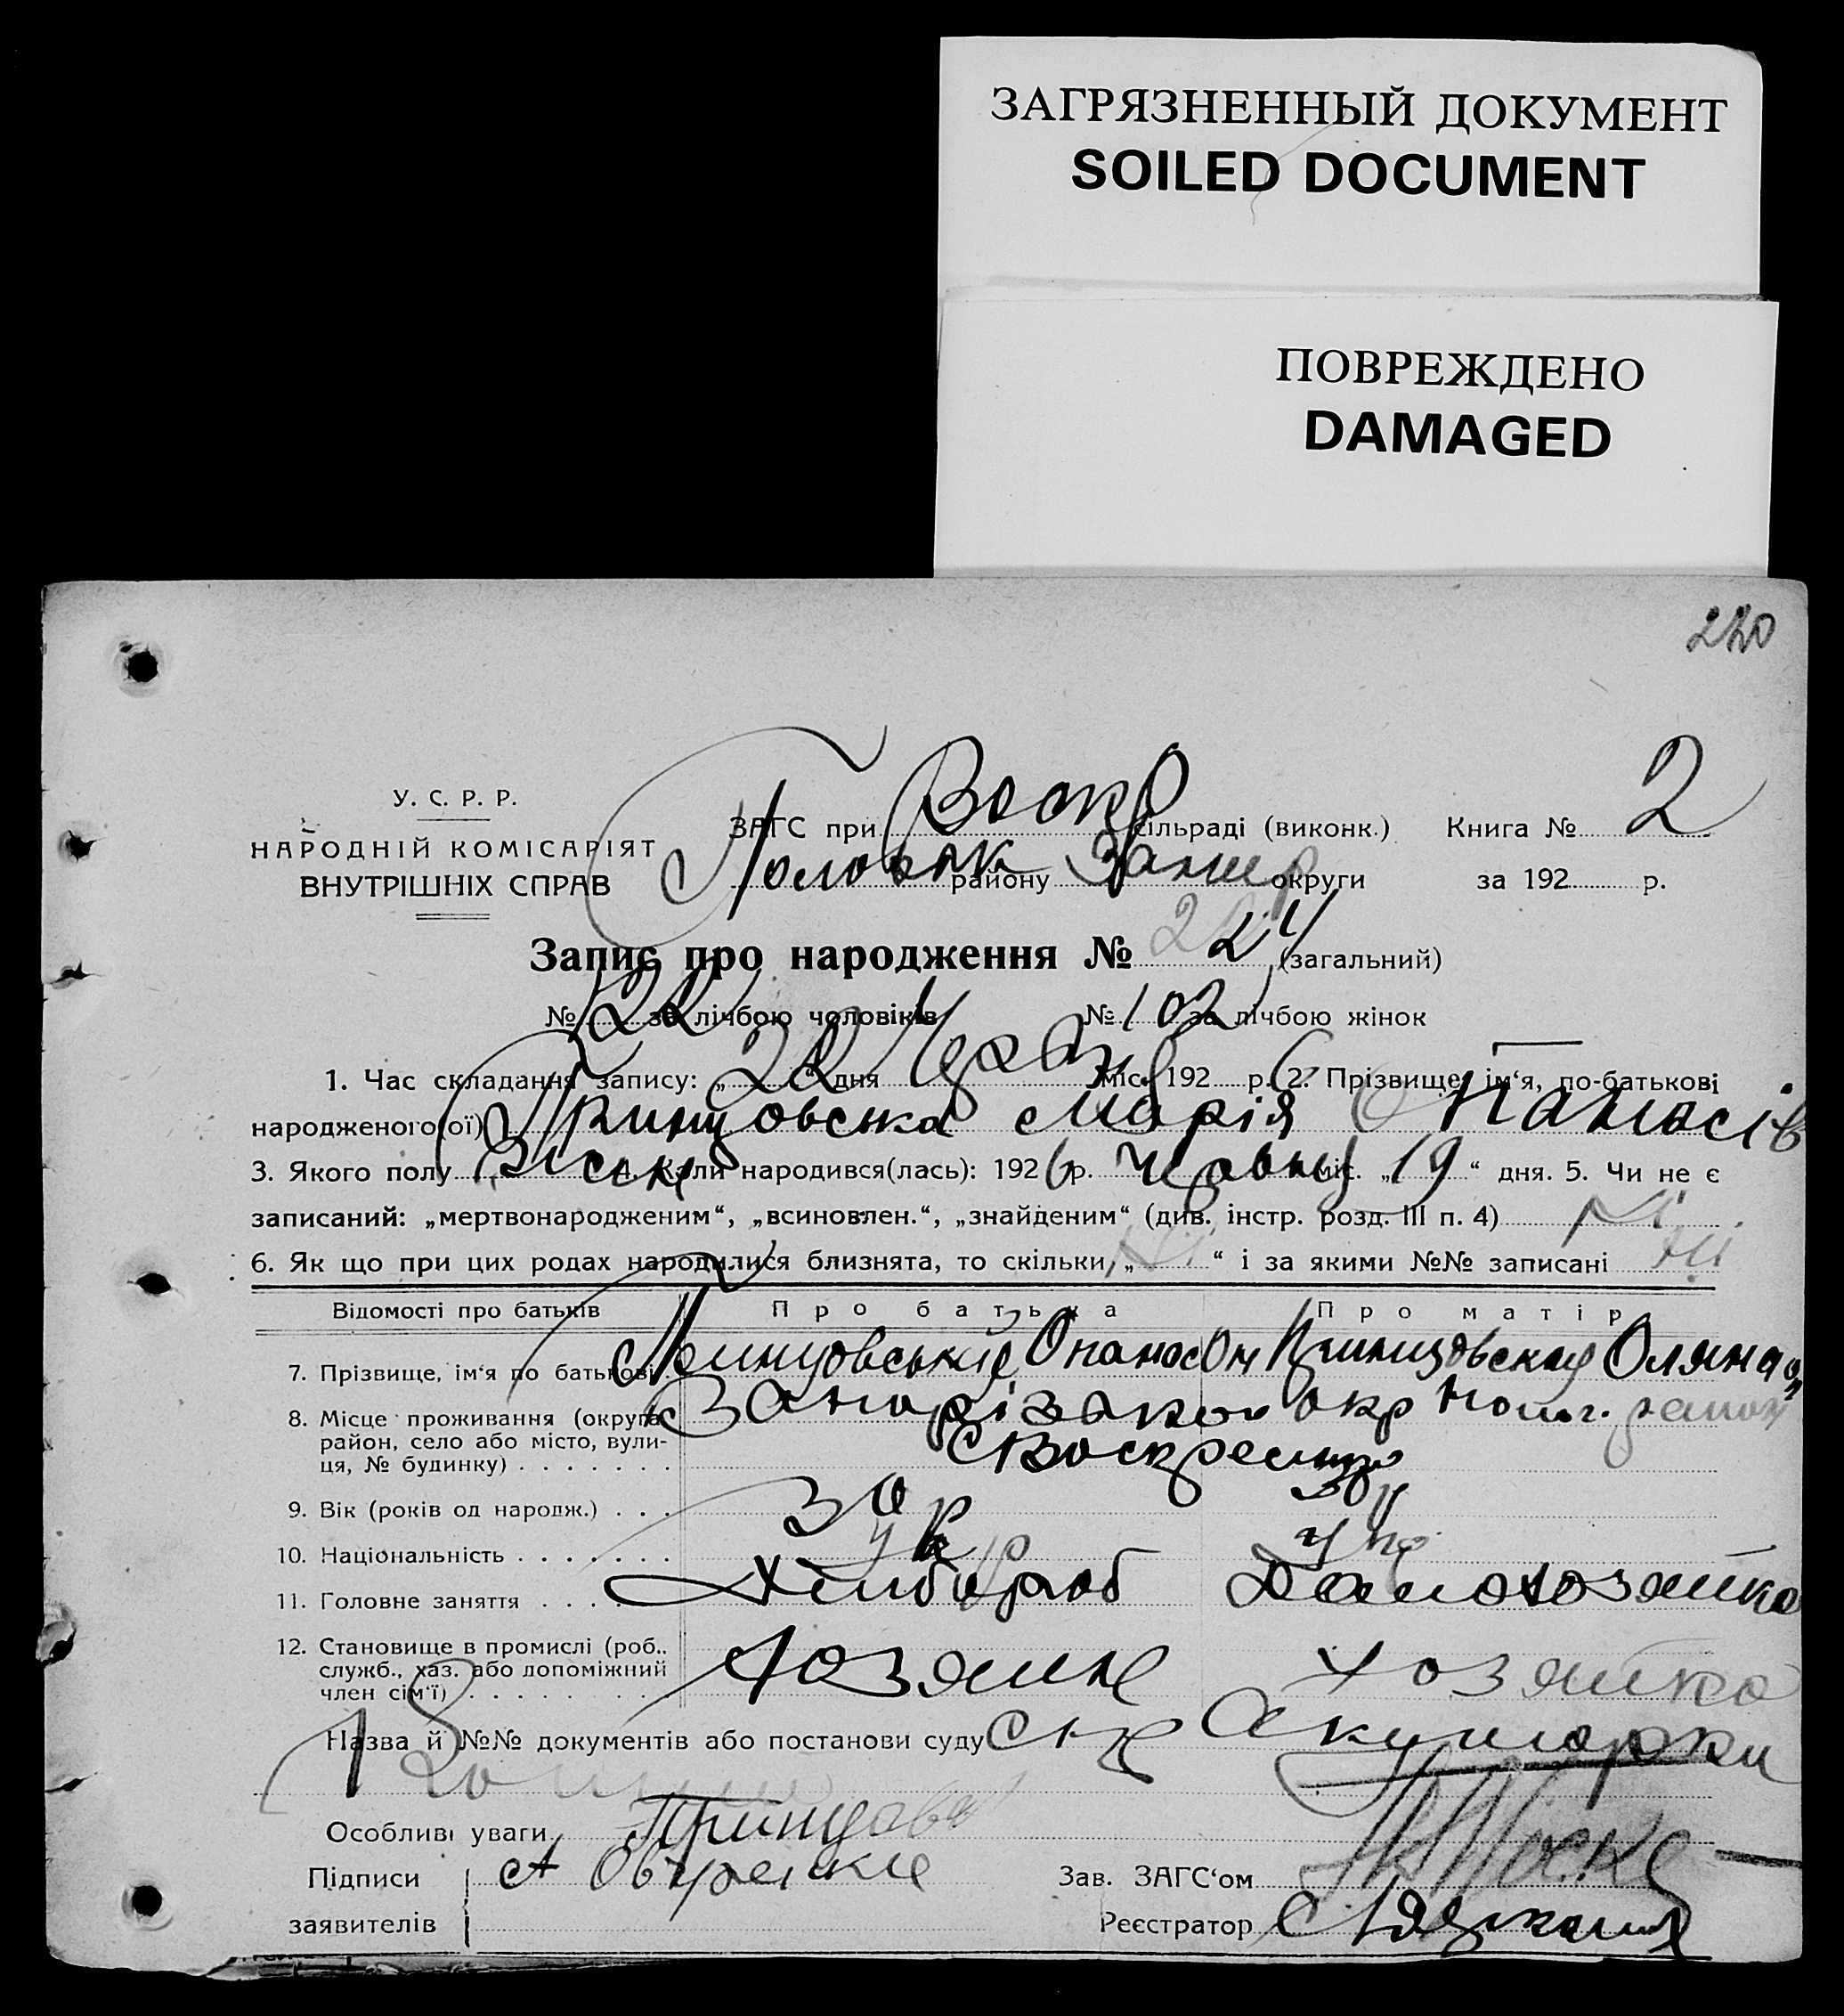 ЗАГРЯЗНЕННЫЙ ДОКУМЕНТ
SOILED DOCUMENT
ПОВРЕЖДЕНО
DAMAGED
220
У. С. Р. Р.
НАРОДНІЙ КОМІСАРІЯТ
ВНУТРІШНІХ СПРАВ
ЗАГС при Воскр сільраді (виконк.) Книга № 2
району округи за 192 р.
Запис про народження № 224 (загальний)
№ 122 за лічбою чоловіків № 102 за лічбою жінок
1. Час складання запису: „22“ дня Червня міс. 1926 р. 2. Прізвище, ім‘я, по-батькові
народженого(ої) Принцовська Марія Опанасів
3. Якого полу Жіноч 4. Коли народився(лась): 1926 р. Червня міс. „19“ дня. 5. Чи не є
записаний: „мертвонародженим“, „всиновлен.“, „знайденим“ (див. інстр. розд. III п. 4) Ні
6. Як що при цих родах народилися близнята, то скільки „Ні“ і за якими №№ записані Ні
Відомості про батьків Про батька Про матір
7. Прізвище, ім‘я по батькові. Принцовський Опанас Принцовская Оляна
8. Місце проживання (округа, Запорізької окр район
район, село або місто, вули- с Воскресенка
ця, № будинку)
9. Вік (років од народж.) 30 р 30 р
10. Національність Укр Укр
11. Головне заняття Хлібороб Домохозяйка
12. Становище в промислі (роб.,
служб., хаз. або допоміжний Хозяин Хозяйка
член сім‘ї)
Назва й №№ документів або постанови суду Акушорки
Особливі уваги
Підписи
заявителів
Зав. ЗАГС‘ом
Реєстратор